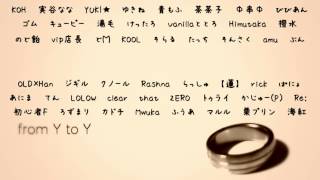 KOH 実谷なな YUKI★ ゆきね 青もふ 茶茶子 中串中 びびあん
ゴム キューピー 湯毛 けったろ vanillaととろ Himutaka 櫻水
のど飴 vip店長 ピM KOOL そらる たっち そんさく amu ぶん
OLD×Han ジギル クノール Rashna らっしゅ 【蓮】 rick ぱにょ
あにま てん LOLOW clear that ZERO トゥライ かじゅー(P) Re:
初心者F ろずまり カドチ Mwuka ふうあ マルル 栗プリン 海紅
from Y to Y